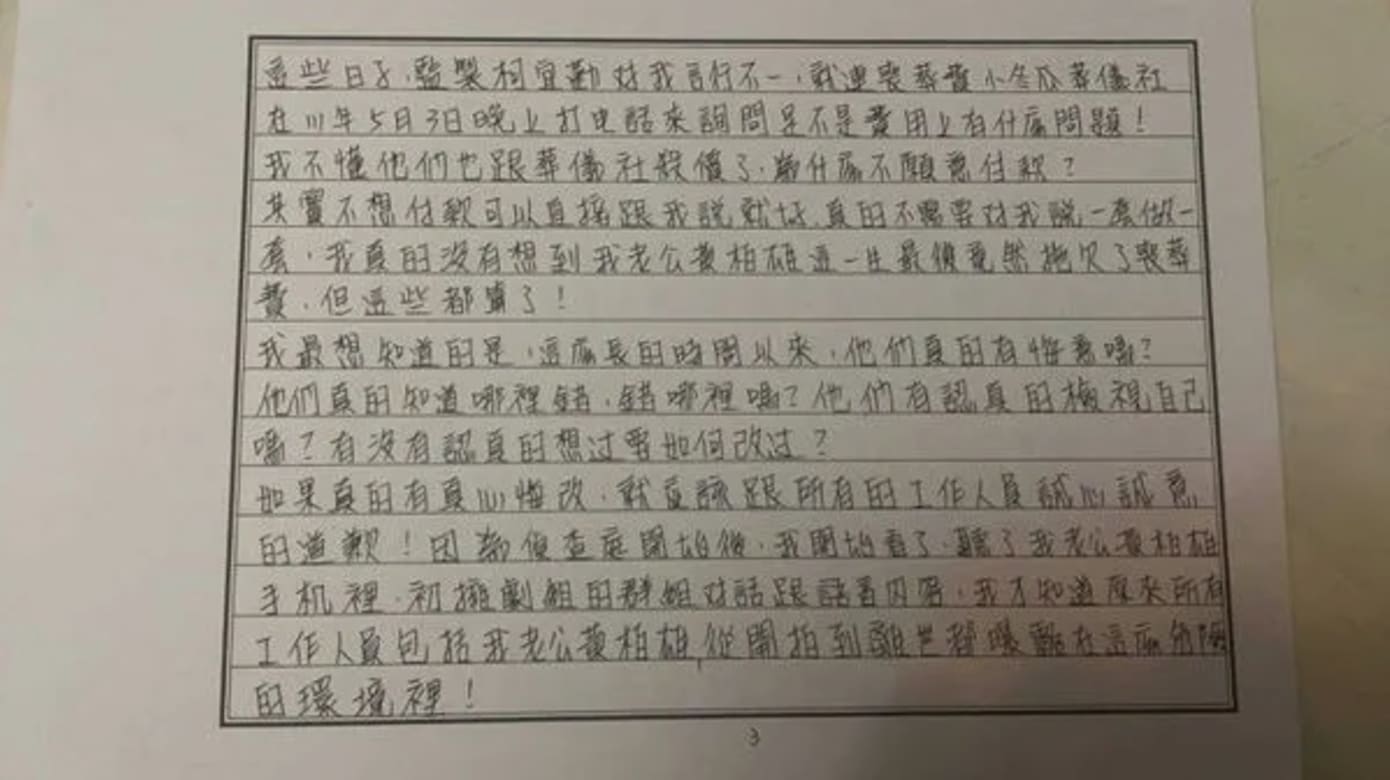 這些日子,監製柯宜勤对我言行不一,就連喪葬費小冬瓜葬儀社
在111年5月3日晚上打电話來詢問是不是費用上有什麼問題!
我不懂他們也跟葬儀社殺價了,為什麼不願意付款?
其實不想付款可以直接跟我說就好,真的不需要对我說一套做一
套,我真的沒有想到我老公黃柏雄這一生最後竟然拖欠了喪葬
費,但這些都算了!
我最想知道的是,這麼長的時間以來,他們真的有悔意嗎?
他們真的知道哪裡錯,錯哪裡嗎?他們有認真的檢視自己
嗎?有沒有認真的想过要如何改过?
如果真的有真心悔改,就應該跟所有的工作人員誠心誠意
的道歉!因為偵查庭開始後,我開始看了,聽了我老公黃柏雄
手机裡,初擁劇組的群組对話跟語音內容,我才知道原來所有
工作人員包括我老公黃柏雄從開拍到離世都曝露在這麼危險
的環境裡!
3